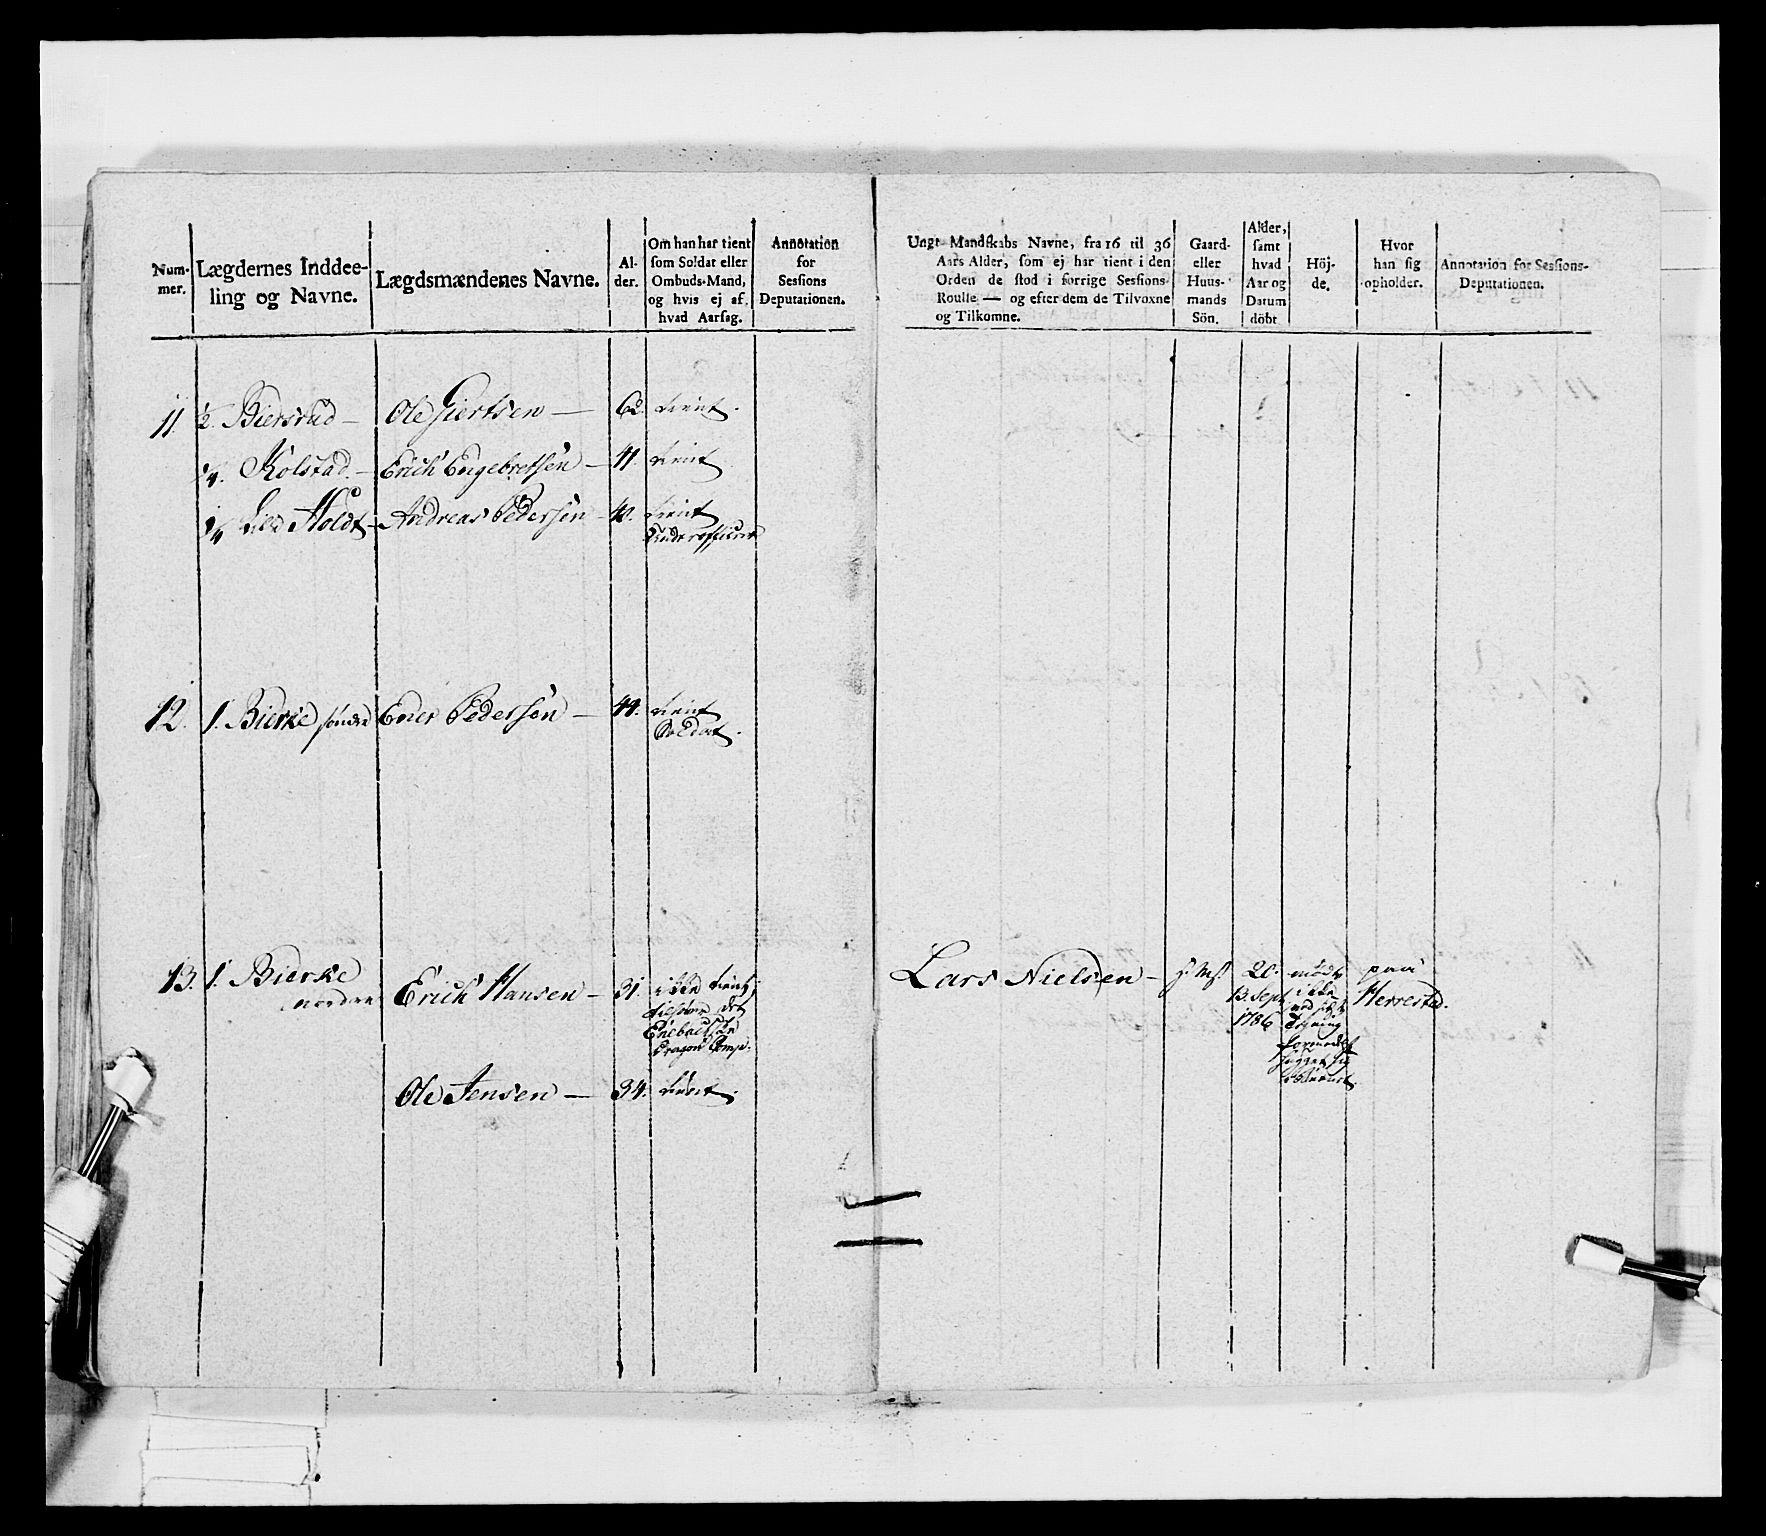 Num-
mer.
Lægdernes Inddee-
ling og Navne.
Lægdsmændenes Navne.
Al-
der.
Om han har tient
som Soldat eller
Ombuds-Mand,
og hvis ej af
hvad Aarsag.
Annotation
for
Sessions
Deputationen.
Ungt Mandskabs Navne, fra 16 til 36
Aars Alder, som ej har tient i den
Orden de stod i forrige Sessions-
Roulle — og efter dem de Tilvoxne
og Tilkomne.
Gaard-
eller
Huus-
mands
Sön.
Alder,
samt
hvad
Aar og
Datum
döbt
Höj-
de.
Hvor
han sig
opholder.
Annotation for Sessions-
Deputationen.
11. 1/2. Biersrud — Ole Giertsen — 62. tient.
1/4. Kolstad — Erich Engebretsen — 41. tient
1/4 Holdt — Andreas Pedersen — 40. tient
Underofficier
12. 1. Bierke söndre Ener Pedersen — 44. tient
Soldat.
13. 1. Bierke
nordre
Erich Hansen — 31. ikke tient
Dragon Comp.
Ole Jensen — 34. tient.
Lars Nielsen — 20. mödt paa
13. Sept ikke Herrestad.
1786